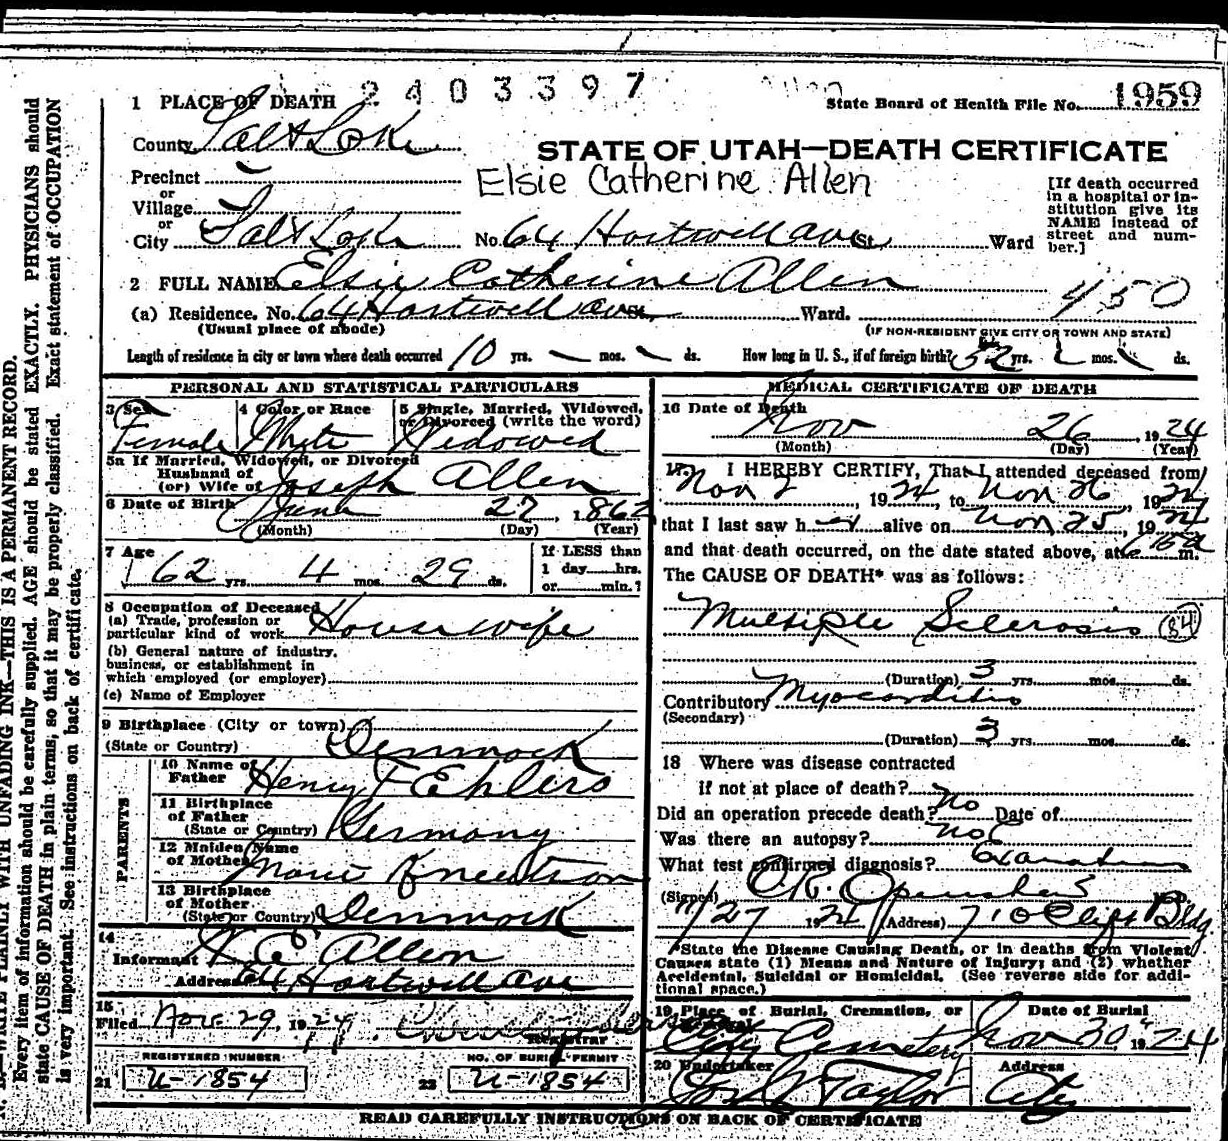 2403397
State Board of Health File No. 1959
1 PLACE OF DEATH
County Salt Lake
STATE OF UTAH—DEATH CERTIFICATE
Precinct
Elsie Catherine Allen
or
Village
or
City Salt Lake No. 64 Hartwell ave St. Ward
[If death occurred
in a hospital or in-
stitution give its
NAME instead of
street and num-
ber.]
2 FULL NAME Elsie Catherine Allen
450
(a) Residence. No. 64 Hartwell ave Ward.
(Usual place of abode) (IF NON-RESIDENT GIVE CITY OR TOWN AND STATE)
Length of residence in city or town where death occurred 10 yrs. mos. ds. How long in U. S., if of foreign birth? 52 yrs. mos. ds.
PERSONAL AND STATISTICAL PARTICULARS
3 Sex
4 Color or Race
5 Single, Married, Widowed,
or Divorced (write the word)
Female White Widowed
5a If Married, Widowed, or Divorced
Husband of
(or) Wife of Joseph Allen
6 Date of Birth June 27, 1862
(Month) (Day) (Year)
7 Age
62 yrs. 4 mos. 29 ds.
If LESS than
1 day hrs.
or min.?
8 Occupation of Deceased
(a) Trade, profession or
particular kind of work Housewife
(b) General nature of industry,
business, or establishment in
which employed (or employer)
(c) Name of Employer
9 Birthplace (City or town)
(State or Country) Denmark
PARENTS
10 Name of
Father Henry F Ehlers
11 Birthplace
of Father
(State or Country) Germany
12 Maiden Name
of Mother Marie Kneudtson
13 Birthplace
of Mother
(State or Country) Denmark
14
Informant E Allen
Address 64 Hartwell Ave
15
Filed Nov. 29, 1924
Registrar
REGISTERED NUMBER NO. OF BURIAL PERMIT
21 U-1854 22 U-1854
MEDICAL CERTIFICATE OF DEATH
16 Date of Death
Nov 26, 1924
(Month) (Day) (Year)
17. I HEREBY CERTIFY, That I attended deceased from
Nov 2, 1924, to Nov 26, 1924
that I last saw her alive on Nov, 25, 1924
and that death occurred, on the date stated above, at m.
The CAUSE OF DEATH* was as follows:
Multiple Sclerosis 84
(Duration) 3 yrs. mos. ds.
Contributory Myocarditis
(Secondary)
(Duration) 3 yrs. mos. ds.
18 Where was disease contracted
if not at place of death?
Did an operation precede death? No Date of
Was there an autopsy? No
What test confirmed diagnosis?
(Signed) Openshaw
11/27 1924 (Address) 710 Clift Bldg
*State the Disease Causing Death, or in deaths from Violent
Causes state (1) Means and Nature of Injury; and (2) whether
Accidental, Suicidal or Homicidal. (See reverse side for addi-
tional space.)
19 Place of Burial, Cremation, or
Date of Burial
City Cemetery Nov 30 1924
20 Undertaker
Address
Taylor City
READ CAREFULLY INSTRUCTIONS ON BACK OF CERTIFICATE
WRITE PLAINLY WITH UNFADING INK—THIS IS A PERMANENT RECORD.
Every item of information should be carefully supplied. AGE should be stated EXACTLY. PHYSICIANS should
state CAUSE OF DEATH in plain terms, so that it may be properly classified. Exact statement of OCCUPATION
is very important. See instructions on back of certificate.